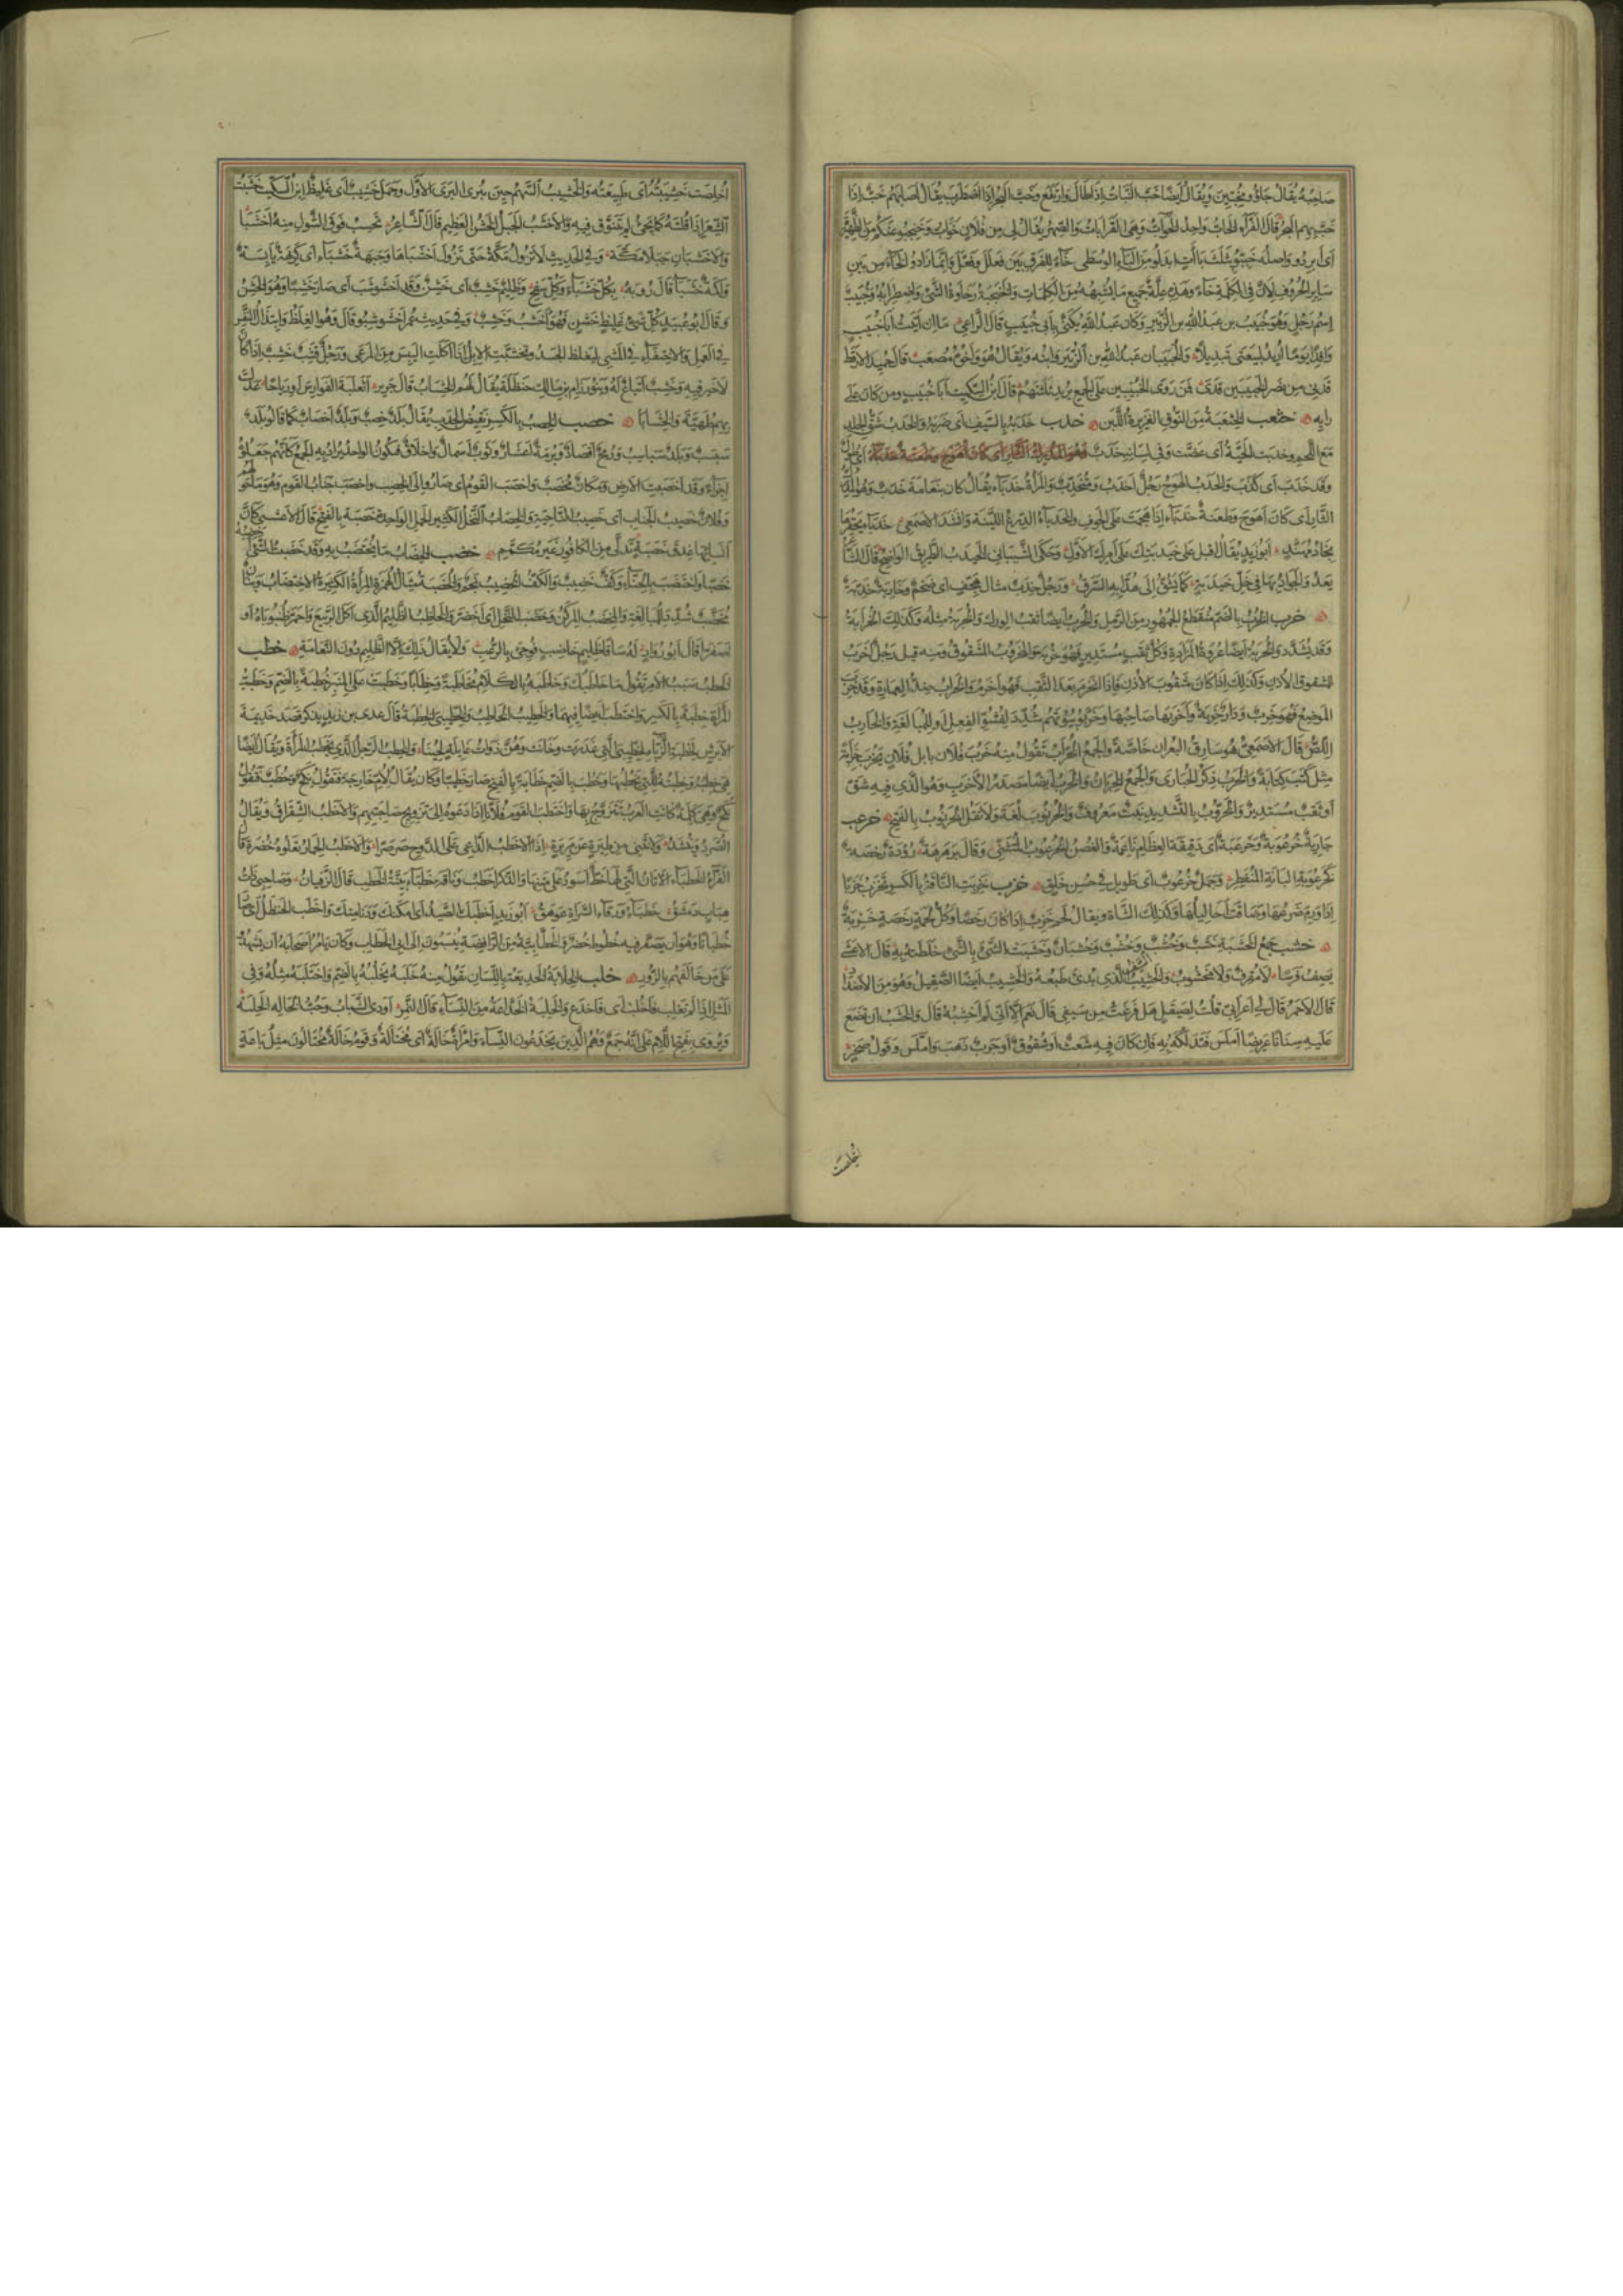 صاحبه يقال جاؤا مخبين ويقال ايضا خب النبات اذا طال وارتفع وخب البحر اذا اضطرب يقال اصابهم خب اذا
خب بهم البحر قال الفراء الخاب واحد الخواب وهي القرابات والصهر يقال لي من فلان خواب وخبخبوا عنكم من الظهيرة
اي ابردوا واصله خببوا بثلث باءات ابدلوا من الباء الوسطى خاء للفرق بين فعلل وفعل وانما زادوا الخاء من بين
ساير الحروف لان في الكلمة خاء وهذه علة جميع ما اشبهه من الكلمات والخبخبة رخاوة الشئ واضطرابه وخبيب
اسم رجل وهو خبيب بن عبد الله بن الزبير وكان عبد الله يكنى بابي خبيب قال الراعي ما ان اتيت ابا خبيب
وافدا يوما اريد لبيعتي تبديلا والخبيبان عبد الله بن الزبير وابنه ويقال هو واخوه مصعب قال حميد الارقط
قدني من نصر الخبيبين قدي فمن روى الخبيبين على الجمع يريد ثلثتهم قال ابن السكيت ابا خبيب ومن كان على
رايه خثعب الخثعبة من النوق الغزيرة اللبن خدب خدبه بالسيف اي ضربه والخدب شق الجلد
مع اللحم وخدبت الحية اي عضت وفي لسانه خدب
وقد خدب اي كذب والخدب الهوج رجل اخدب ومتخدب والمراة خدباء يقال كان بنعامة خدب وهو المدرك
الثار اي كان اهوج وطعنة خدباء اذا هجمت على الجوف والخدباء الدرع اللينة وانشد الاصمعي خدباء يحفزها
نجاد مهند ابو زيد يقال اقبل على خيدبتك على امرك الاول وحكى الشيباني الخيدب الطريق الواضح قال الشاعر
يعدو الجواد بها في خل خيدبة كما يشق الى هدابه السرق ورجل خدب مثال هجف اي ضخم وجارية خدبة
خرب الخرب بالضم منقطع الجمهور من الرمل والخرب ايضا ثقب الورك والخربة مثله وكذلك الخرابة
وقد يشدد والخربة ايضا عروة المزادة وكل ثقب مستدير فهو خربة والخروب الشقوق ومنه قيل رجل اخرب
المشقوق الاذن وكذلك اذا كان مثقوب الاذن فاذا انخرم بعد الثقب فهو اخرم والخراب ضد العمارة وقد خرب
الموضع فهو خرب ودار خربة واخربها صاحبها وخربوا بيوتهم شدد لفشو الفعل او للمبالغة والخارب
اللص قال الاصمعي هو سارق البعران خاصة والجمع الخراب تقول منه خرب فلان بابل فلان يخرب خرابة
مثل كتب كتابة والخرب ذكر الحبارى والجمع الخربان والخرب ايضا مصدر الاخرب وهو الذي فيه شق
او ثقب مستدير والخروب بالتشديد نبت معروف والخرنوب لغة ولا تقل الخرنوب بالفتح خرعب
جارية خرعوبة وخرعبة اي دقيقة العظام ناعمة والغصن الخرعوب المتثني وقال برهرهة رؤدة رخصة
كخرعوبة البانة المنفطر وجمل خرعوب اي طويل في حسن خلق خزب خزبت الناقة بالكسر تخزب خزبا
اذا ورم ضرعها وضاقت احاليلها وكذلك الشاة ويقال لحم خزب اذا كان رخصا وكل لحمة رخصة خزبة
خشب جمع الخشبة خشب وخشب وخشب وخشبان وخشبت الشئ بالشئ خلطته به قال الاعشى
يصف فرسا لا مقرف ولا مخشوب والخشيب السيف الذي بدئ طبعه والخشيب ايضا الصقيل وهو من الاضداد
قال الاحمر قال لي اعرابي قلت لصيقل هل فرغت من سيفي قال نعم الا اني لم اخشبه قال والخشب ان تضع
عليه سنانا عريضا املس فتدلكه به فان كان فيه شعث او شقوق او حدب ذهب واملس وقول صخر
اخلصت
اخلصت خشيبته اي طبيعته والخشيب السهم حين يبرى البرى الاول وجمل خشيب اي غليظ ابن السكيت خشبت
الشعر اذا قلته كما يجئ لم تتنوق فيه والاخشب الجبل الخشن العظيم قال الشاعر تحسب فوق الشول منه اخشبا
والاخشبان جبلا مكة وفي الحديث لا تزول مكة حتى تزول اخشباها وجبهة خشباء اي كريهة يابسة
واكمة خشباء قال رؤبة بكل خشباء وكل سفح وظليم خشب اي خشن وقد اخشوشب اي صار خشبا وهو الخشن
وقال ابو عبيد كل شئ غليظ خشن فهو اخشب وخشب وفي حديث عمر اخشوشبوا قال وهو الغلظ وابتذال النفس
في العمل والاحتفاء في المشي ليغلظ الجسد وتخشبت الابل اذا اكلت اليبس من المرعى ورجل قشب خشب اذا كان
لا خير فيه وخشب اتباع له وبنو رزام بن مالك بن حنظلة يقال لهم الخشاب قال جرير اثعلبة الفوارس او رياحا عدلت
بهم طهية والخشابا خصب الخصب بالكسر نقيض الجدب يقال بلد خصب وبلد اخصاب كما قالوا بلد
سبسب وبلد سباسب ورمح اقصاد وبرمة اعشار وثوب اسمال واخلاق فيكون الواحد يراد به الجمع كانهم جعلوه
اجزاء وقد اخصبت الارض ومكان مخصب واخصب القوم اي صاروا الى الخصب واخصب جناب القوم وهو ما حولهم
وفلان خصيب الجناب اي خصيب الناحية والخصاب النخل الكثير الحمل الواحدة خصبة بالفتح قال الاعشى كان
انسابها عذق خصبة تدلى من الكافور غير مكمم خضب الخضاب ما يختضب به وقد خضبت الشئ اخضبه
خضبا واختضب بالحناء وكف خضيب والكف الخضيب نجم والخضبة مثال الهمزة المراة الكثيرة الاختضاب وبنان
مخضب شدد للمبالغة والمخضب المركن وخضب النخل اي اخضر والخاضب الظليم الذي اكل الربيع واحمر ظنبوباه او
اصفرا قال ابو دواد له ساقا ظليم خاضب فوجئ بالرعب ولا يقال ذلك الا للظليم دون النعامة خطب
الخطب سبب الامر تقول ما خطبك وخاطبه بالكلام مخاطبة وخطابا وخطبت على المنبر خطبة بالضم وخطبت
المراة خطبة بالكسر واختطب ايضا فيهما والخطيب الخاطب والخطيبى الخطبة قال عدي بن زيد يذكر قصد جذيمة
الابرش لخطبة الزباء لخطيبى التي غدرت وخانت وهن ذوات غايلة لحينا والخطب الرجل الذي يخطب المراة ويقال ايضا
هي خطبه وخطبته للتي يخطبها وخطب بالضم خطابة بالفتح صار خطيبا وكان يقال لام خارجة فتقول نكح وخطب فتقول
نكح وهي كلمة كانت العرب تتزوج بها واختطب القوم فلانا اذا دعوه الى تزويج صاحبتهم والاخطب الشقراق ويقال
الصرد وينشد ولا انثني من طيرة عن مريرة اذا الاخطب الداعي على الدوح صرصرا والاخطب الحمار تعلوه خضرة قال
الفراء الخطباء الاتان التي لها خط اسود على متنها والذكر اخطب وناقة خطباء بينة الخطب قال الزفيان وصاحبي ذات
هباب دمشق خطباء ورقاء السراة عوهق ابو زيد اخطبك الصيد اي امكنك ودنا منك واخطب الحنظل اي صار
خطبانا وهو ان يصفر فيه خطوط خضر والخطابية من الرافضة ينسبون الى ابي الخطاب وكان يامر اصحابه ان يشهدوا
على من خالفهم بالزور خلب الخلابة الخديعة باللسان تقول منه خلبه يخلبه بالضم واختلبه مثله وفي
المثل اذا لم تغلب فاخلب اي فاخدع والخلبة الخداعة من النساء قال النمر اودى الشباب وحب الخالة الخلبه
ويروى بفتح اللام على انه جمع وهم الذين يخدعون النساء وامراة خالة اي مختالة وقوم خالة مختالون مثل باعة